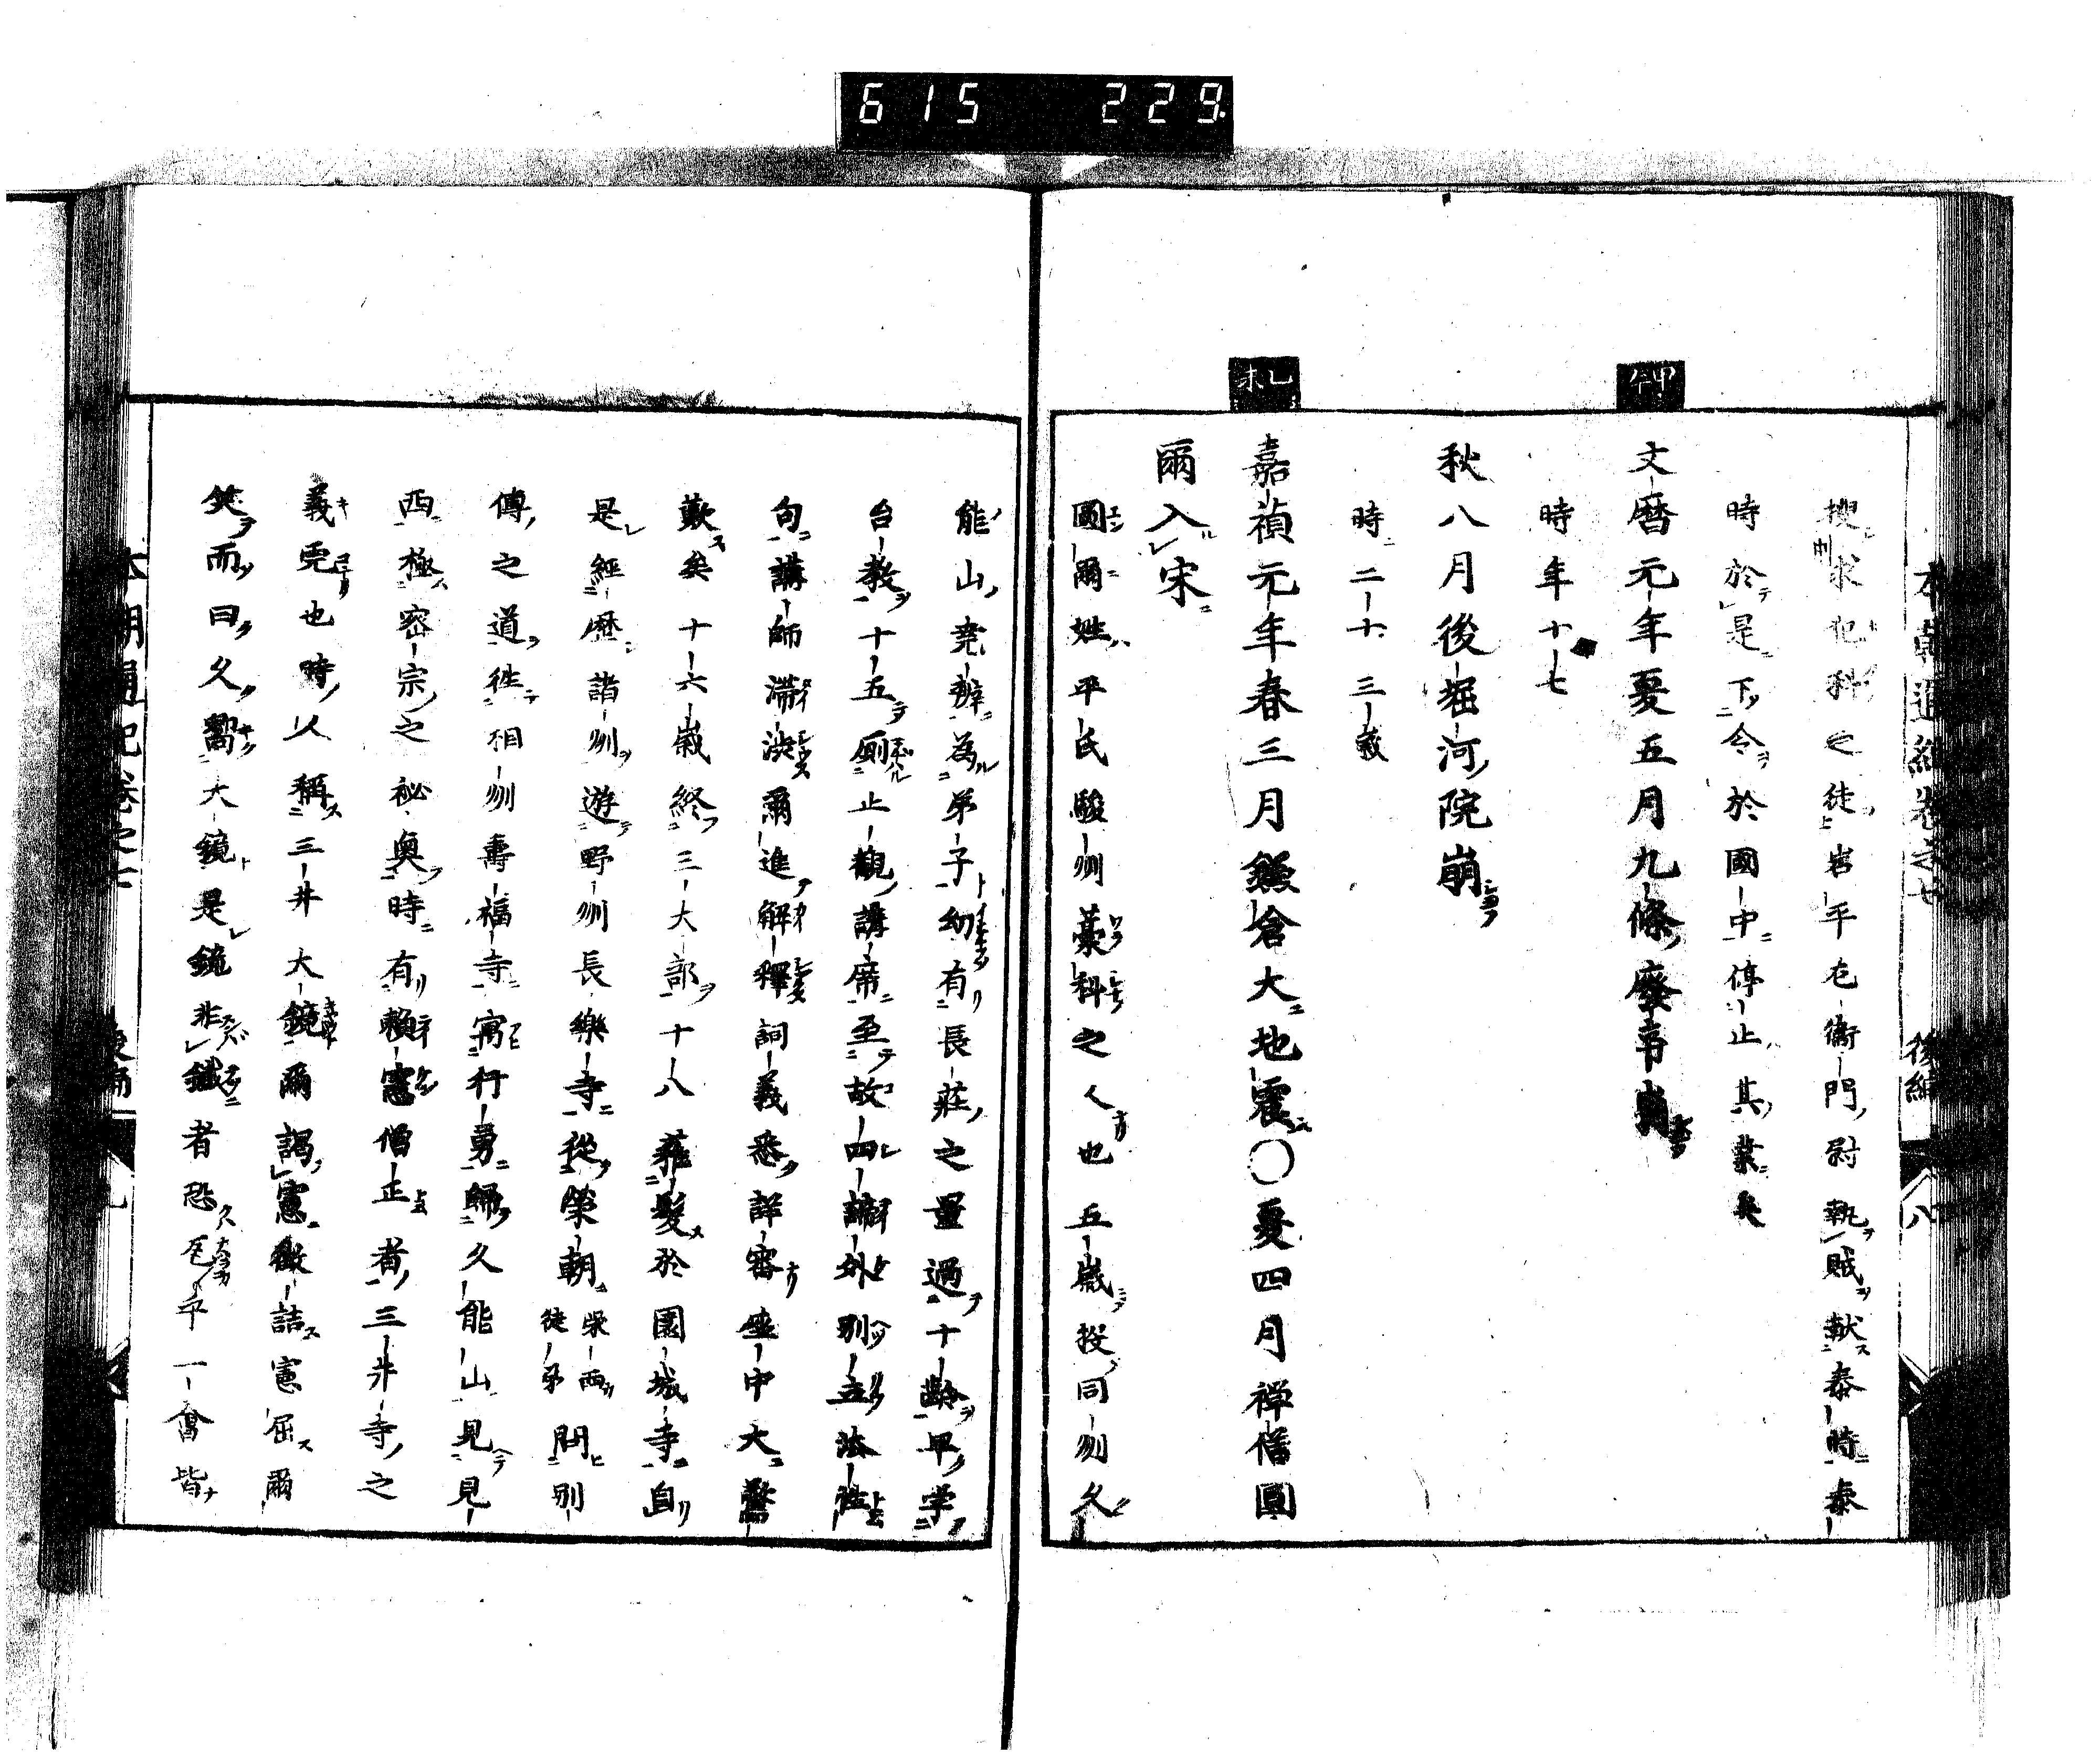 615 229.
搜求犯科之徒岩平左衞門尉執賊献泰時泰
時於是下令於國中停止其業矣
甲午
文暦元年夏五月九條廢帝崩
時年十七
秋八月後堀河院崩
時二十三歲
乙未
嘉禎元年春三月鎌倉大地震〇夏四月禅僧圓
爾入宋
圓爾姓平氏駿州藁科之人也五歲投同州久
能山堯辨為弟子幼有長莊之量過十齡甲学
台教十五厠止觀講席至故四諦外別立法性
句講師滞澁爾進解釋詞義悉詳審座中大驚
歎矣十六歲終三大部十八薙髮於園城寺自
是經歴諸州遊野州長樂寺從榮朝榮西徒弟問別
傳之道徃相州壽福寺寓行勇歸久能山見見
西極密宗之秘奥時有賴憲僧正者三井寺之
義虎也時人稱三井大鏡爾謁憲徴詰憲屈爾
笑而曰久嚮大鏡是鏡非鐵者恐久瓦乎一會皆
本朝通紀卷之七 後編 八
本朝通紀卷之七 後編 九